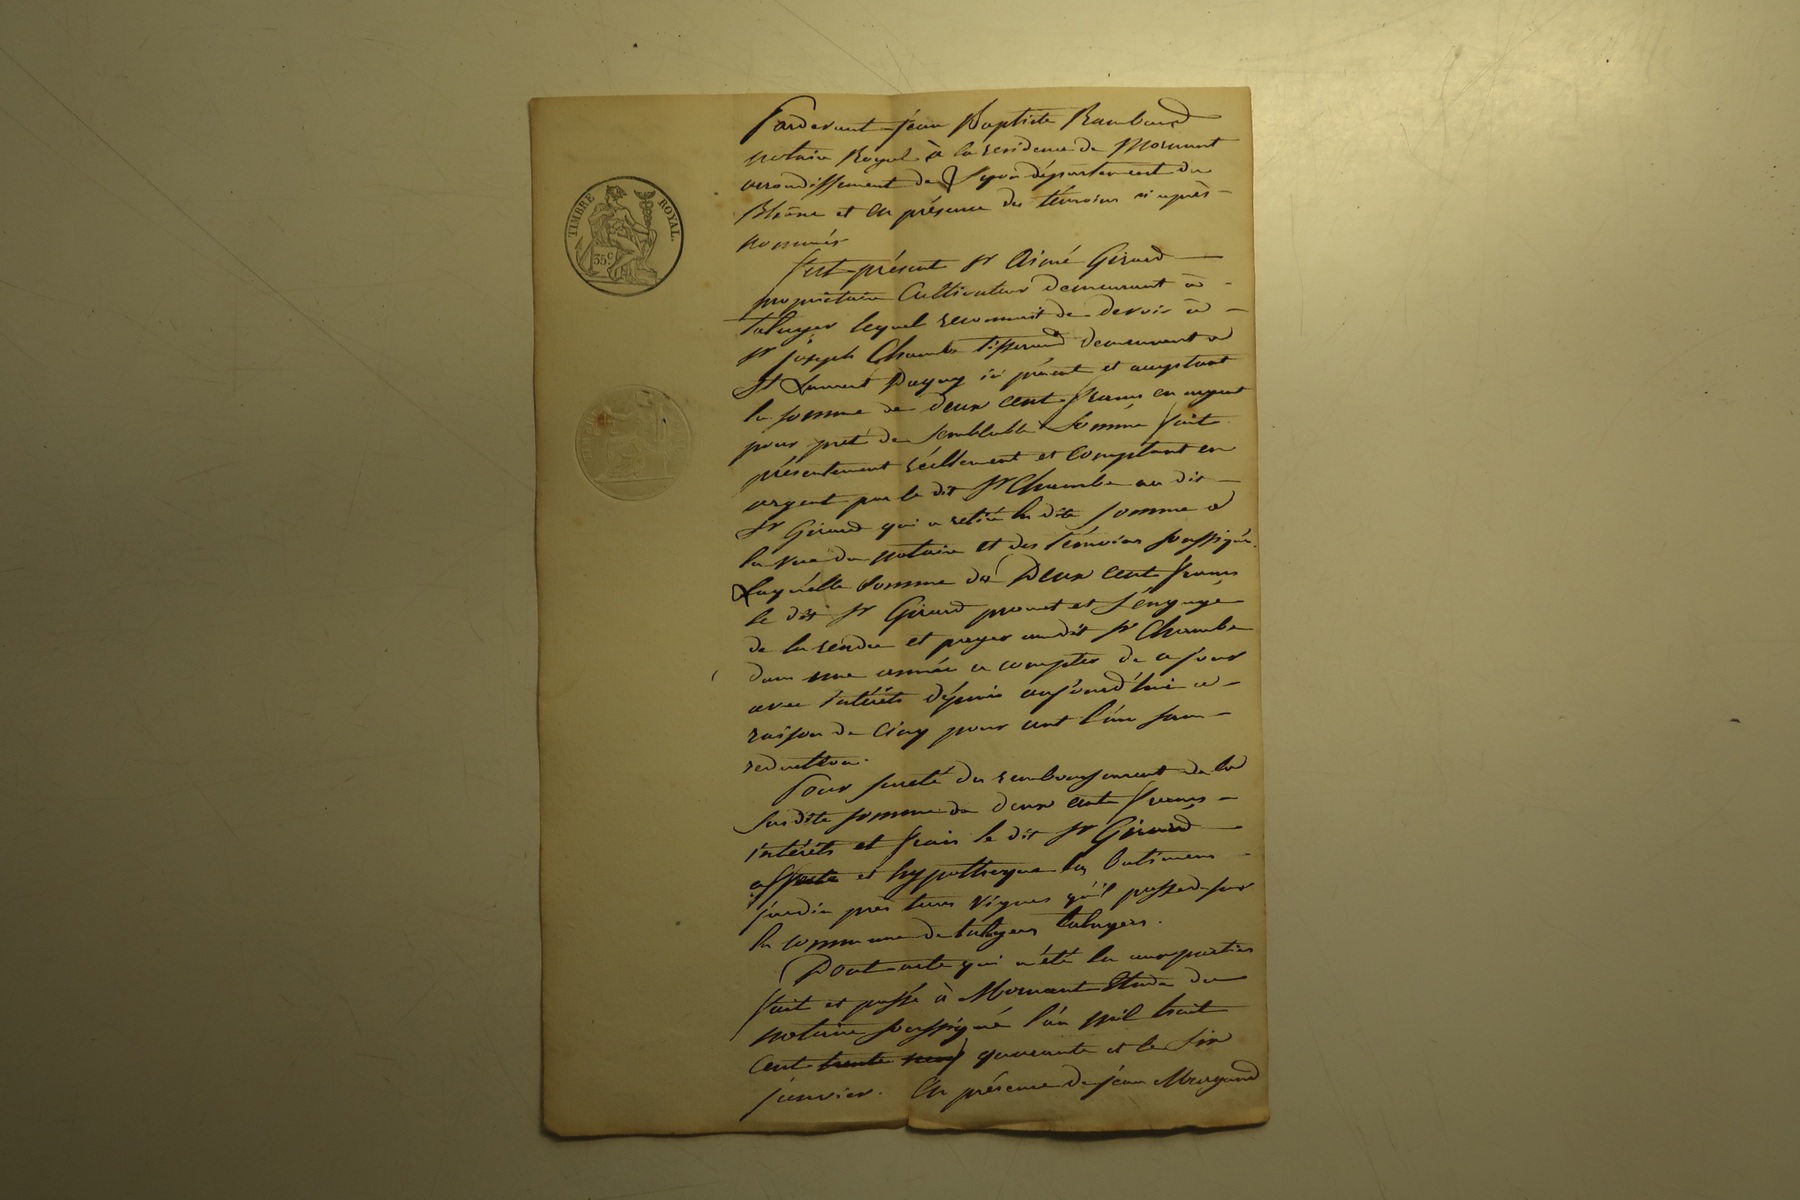 TIMBRE ROYAL.
35c
Pardevant jean Baptiste Rambaud
notaire Royal à la residence de Mornant
arrondissement de Lyon département du
Rhône et en présence des témoins ci après
nommés
fut présent Sr Aimé Girard
propriétaire Cultivateur demeurant à
taluyer lequel reconnait de devoir à
Sr joseph Chambe tisserand demeurant a
St Laurent Dagny ici présent et acceptant
la somme de deux cent francs en argent
pour prêt de semblable somme fait
présentement réellement et comptant en
argent par le dit Sr Chambe au dit
Sr Girard qui a retiré la dite somme a
la vue du notaire et des témoins soussignés.
Laquelle somme de Deux cent francs
le dit Sr Girard promet et s'engage
de la rendre et payer au dit Sr Chambe
dans une année a compter de ce jour
avec intérêts depuis aujourd'hui a
raison de cinq pour cent l'an sans
reduction.
Pour sureté du remboursement de la
susdite somme de deux cent francs
intérêts et frais le dit Sr Girard
affecte et hypotheque les batimens
jardin près terres vignes qu'il possede sur
la commune de taluyers.
Dont acte qui a été lu aux parties
fait et passé à Mornant Etude du
notaire soussigné l'an mil huit
cent trente neuf quarante et le six
janvier. En présence de jean